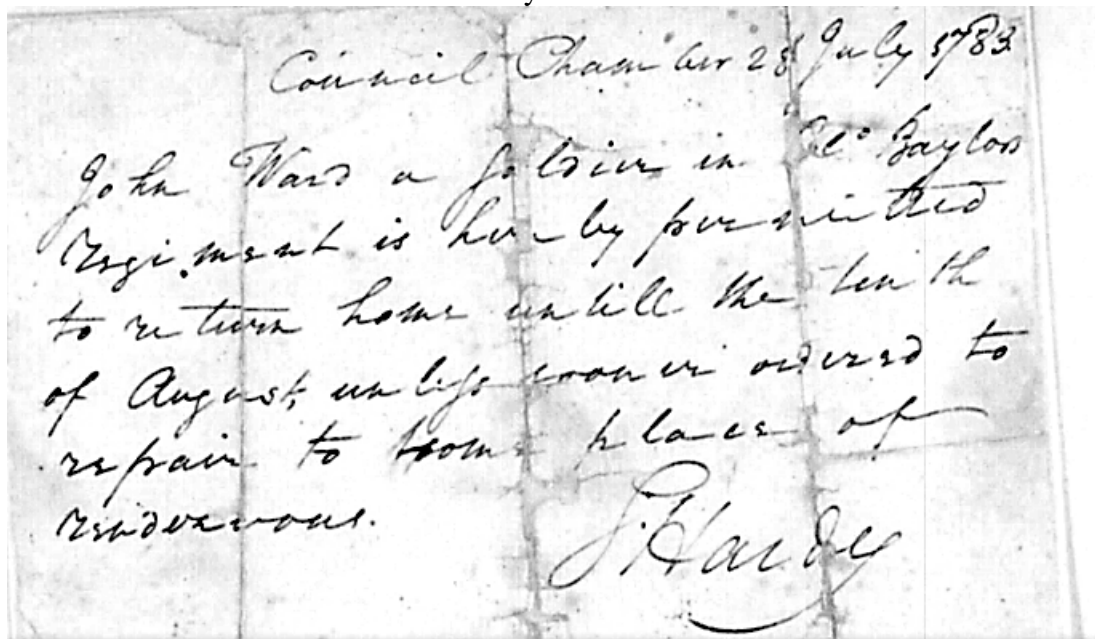 Council Chamber 28 July 1783
John Ward a soldier in Clo Baylors
regiment is hereby permitted
to return home untill the tenth
of August, unless sooner ordered to
repair to some place of
rendezvous.
S. Hardy